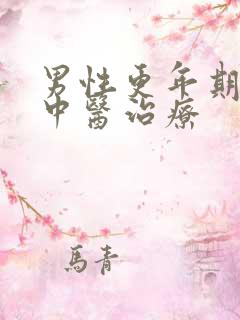 男性更年期
中醫治療
馬青